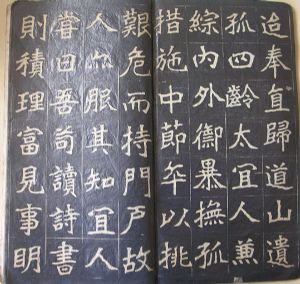 迨奉直歸道山遺
孤四齡太宜人兼
綜內外御暴撫孤
措施中節卒以挑
艱危而持門戶故
人亦服其知宜人
嘗曰吾苟讀詩書
則積理富見事明